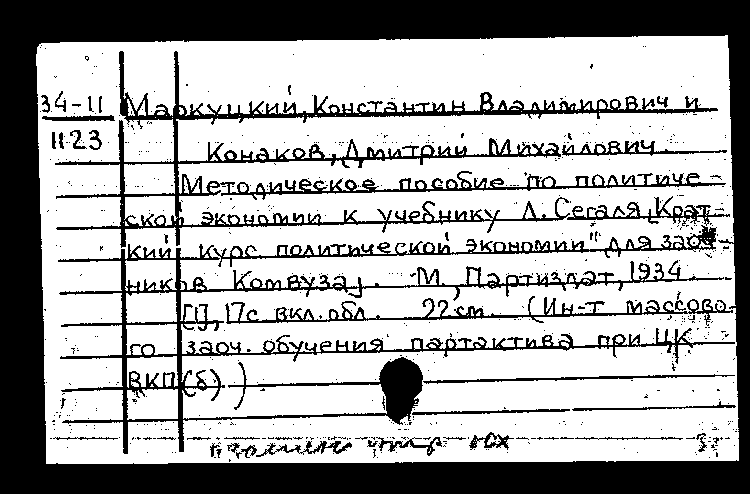 34-11 Маркуцкий, Константин Владимирович и
1123 Конаков, Дмитрий Михайлович.
Методическое пособие по политиче-
ской экономии к учебнику Л. Сегаля „Крат-
кий курс политической экономии" для заоч-
ников Комвуза]. М., Партиздат, 1934.
[1], 17с вкл. обл. 22см. (Ин-т массово-
го заоч. обучения партактива при ЦК
ВКП(б))